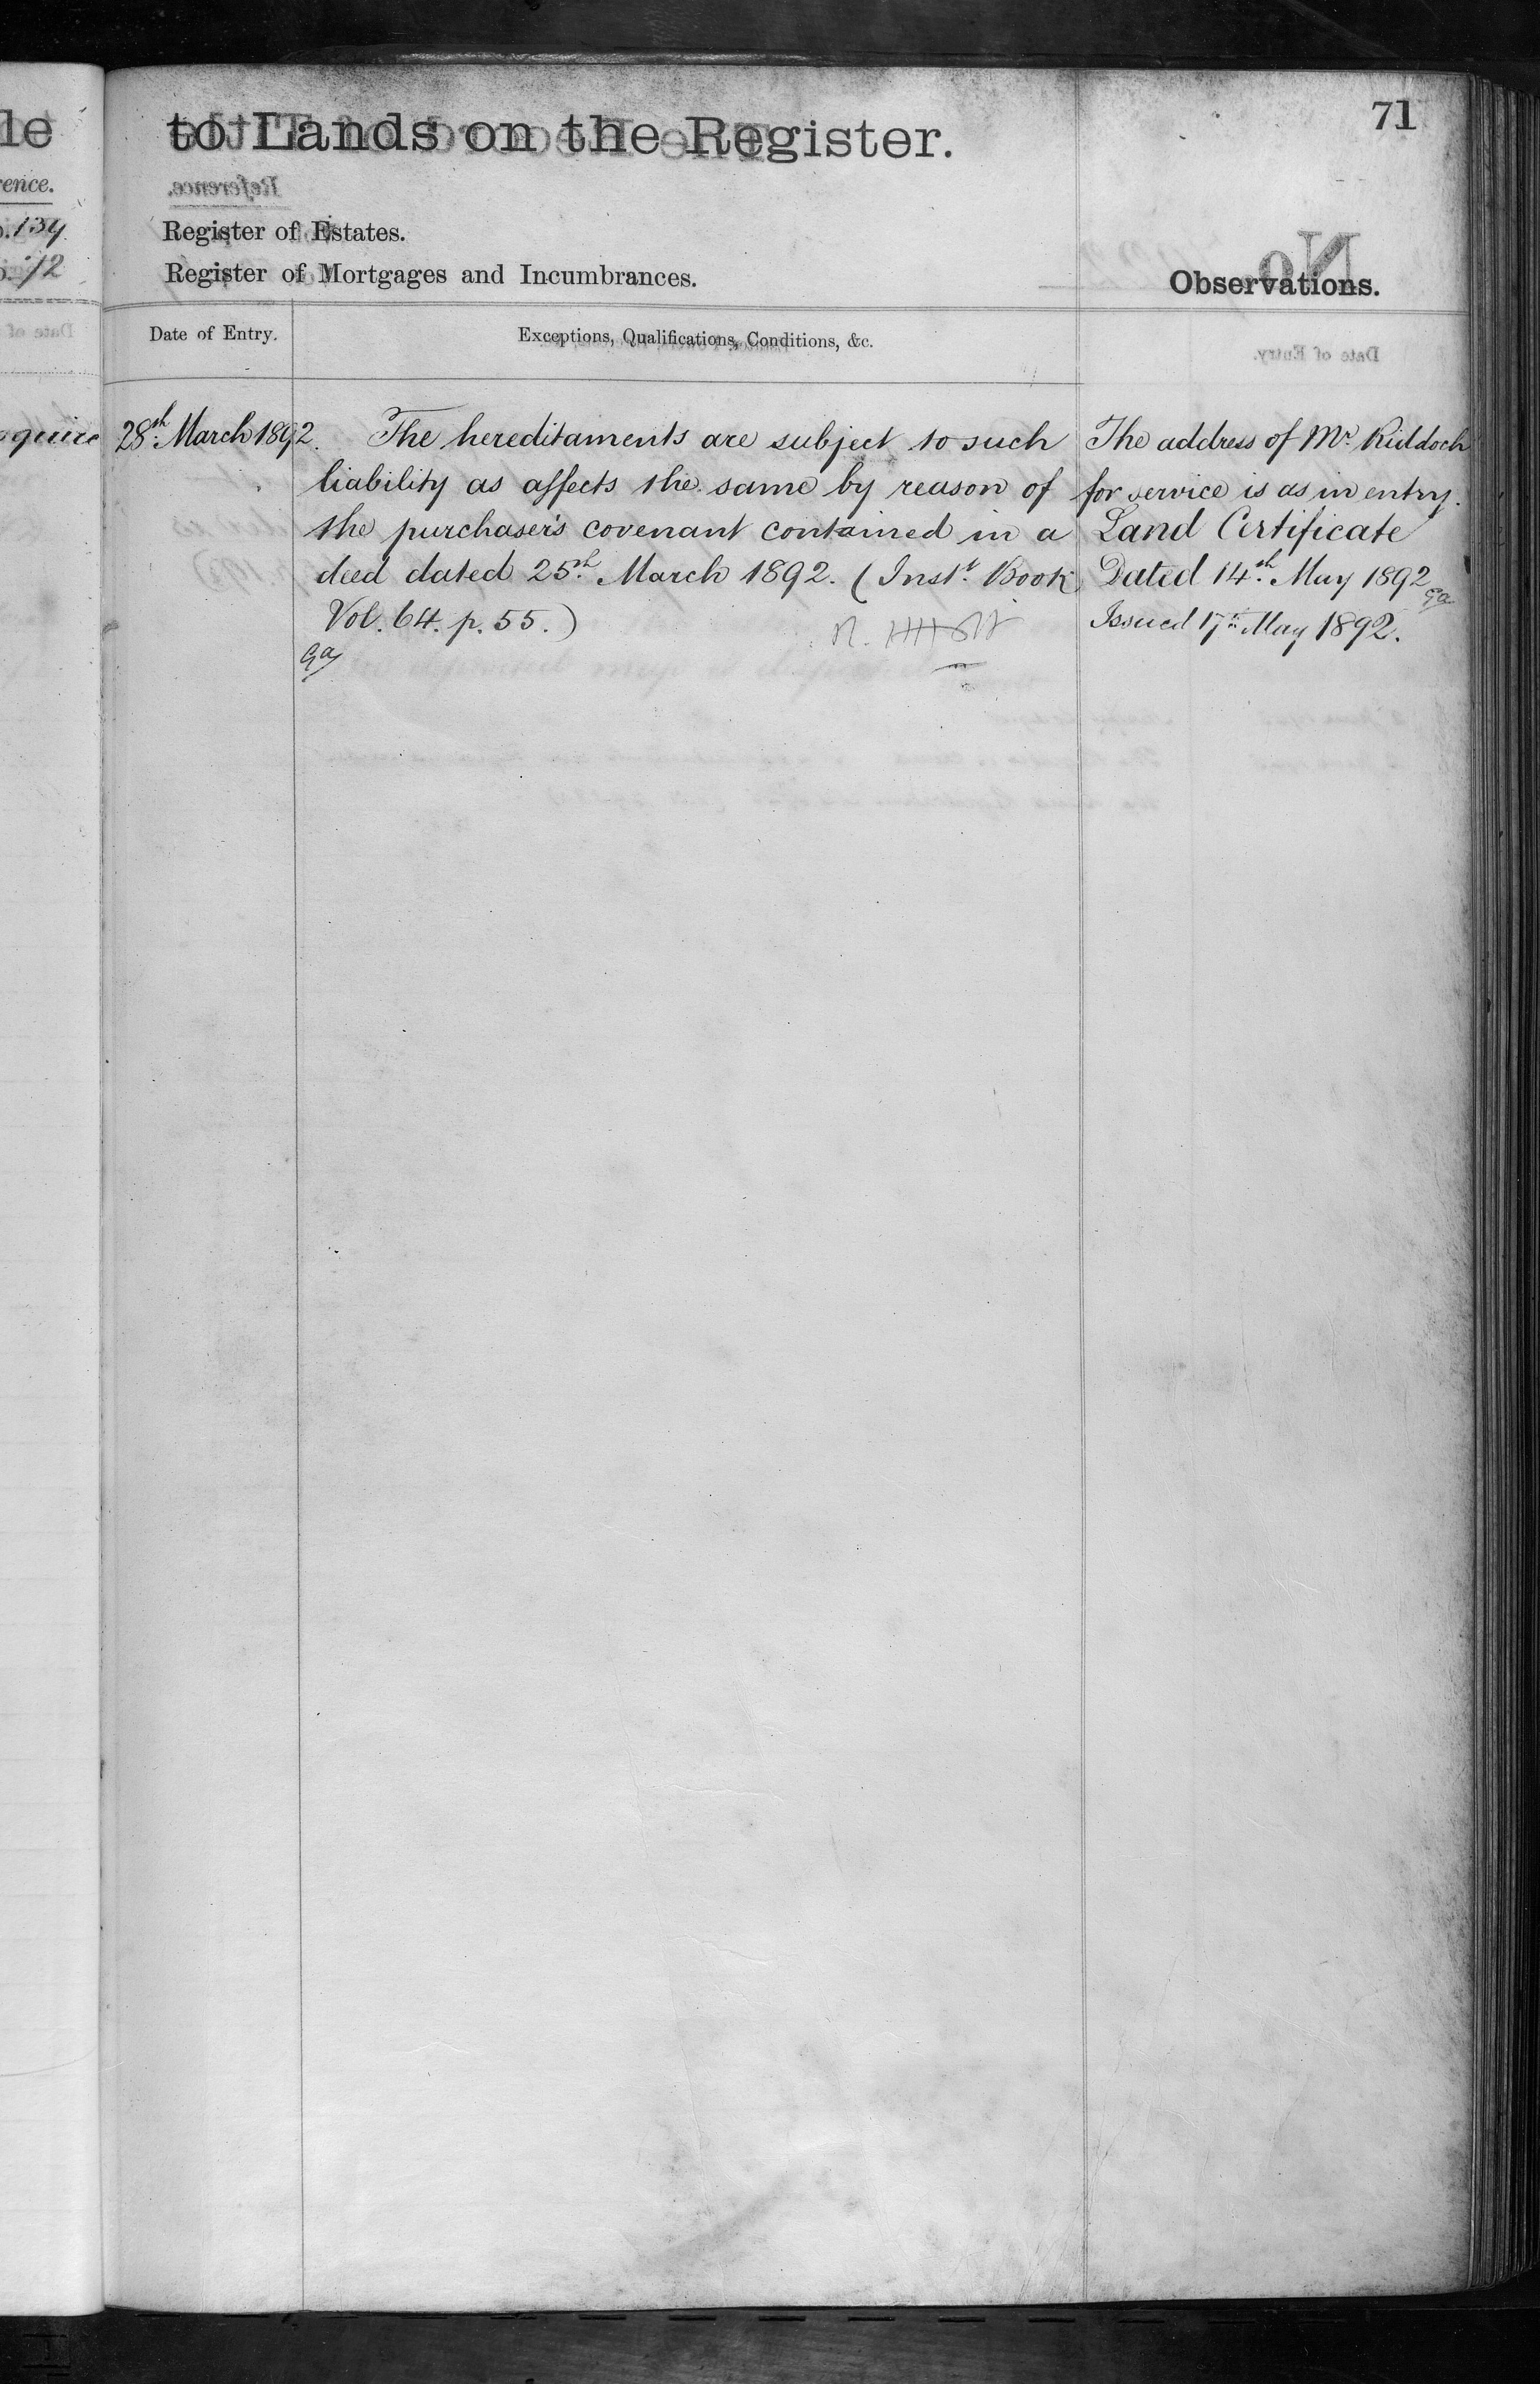 le
ence.
134
12
quire
71
to Lands on the Register.
Register of Estates.
Register of Mortgages and Incumbrances.
Observations.
Date of Entry.
Exceptions, Qualifications, Conditions, &c.
28th March 1892.
The hereditaments are subject to such
liability as affects the same by reason of
the purchaser's covenant contained in a
deed dated 25th March 1892. (Instt Book
Vol. 64. p. 55.)
The address of Mr Riddoch
for service is as in entry.
Land Certificate
Dated 14th May 1892
Issued 17th May 1892.